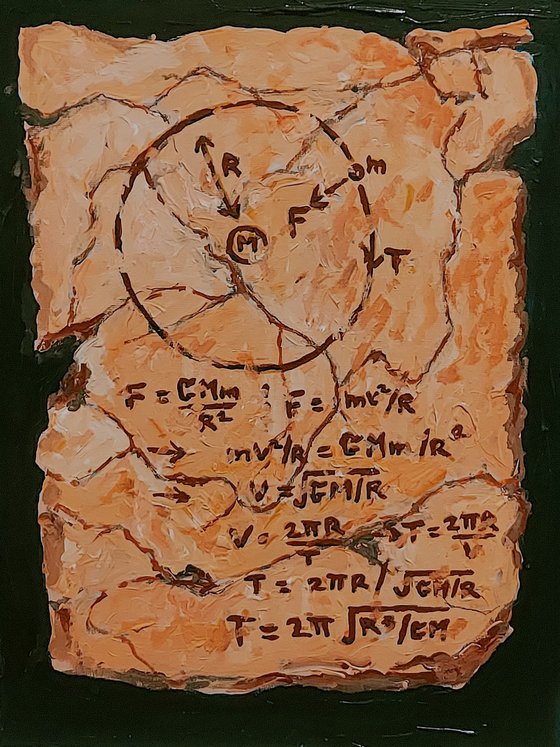 R
m
F
M
T
F = GMm/R² ; F = mv²/R
→ mv²/R = GMm/R²
→ V = √GM/R
V = 2πR/T → T = 2πR/V
T = 2πR/√GM/R
T = 2π√R³/GM